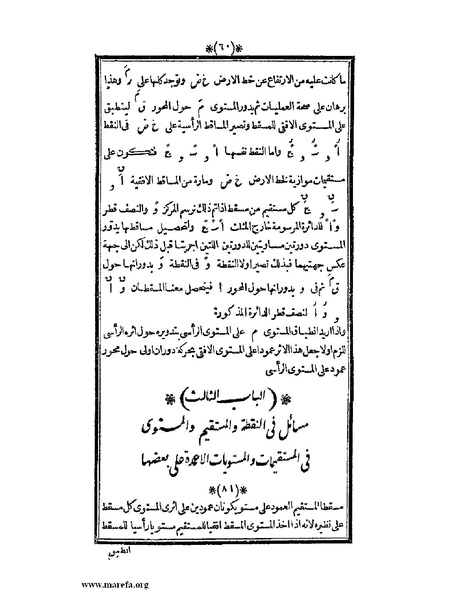 *(٦٠)*
ما كانت عليه من الارتفاع عن خط الارض خ ض وتوجد كلها على رَ مَ وهذا
برهان على صحة العمليات ثم يدور المستوى م حول المحور ق حتى لينطبق
على المستوى الافقى للمسقط وتصير المساقط الرأسية على خ ض فى النقط
أ و ب و ج واما النقط نفسها أ و ب و ج فتكون على
مستقيمات موازية لخط الارض خ ض ومارة من المساقط الافقية أ و
ب و ج كل مستقيم من مسقط اذا تم ذلك نرسم المركز و والنصف قطر
و أ للدائرة المرسومة خارج المثلث أ ب ج ولتحصيل مساقطها يدور
المستوى دورتين مساويتين للدورتين اللتين اجريتا قبل ذلك لكن الى جهة
عكس جهتيهما فبذلك تصير اولا النقطة و فى النقطة و بدورانها حول
ق ثم فى و بدورانها حول المحور أ فيتحصل معنا المسقطان و أ
و و أ لنصف قطر الدائرة المذكورة
واذا اريد انطباق المستوى م على المستوى الرأسى بتدويره حول اثره الرأسى
للزم اولا جعل هذا الاثر عمودا على المستوى الافقى بحركة دوران اولى حول محور
عمود على المستوى الرأسى
*(الباب الثالث)*
مسائل فى النقطة والمستقيم والمستوى
فى المستقيمات والمستويات الاعمدة على بعضها
*(٨١)*
مسقطا المستقيم العمود على مستو يكونان عمودين على اثرى المستوى كل مسقط
على نظيره لانه اذا اخذ المستوى المسقط افقيا للمستقيم مستويا رأسيا للمسقط
انطبق
www.marefa.org